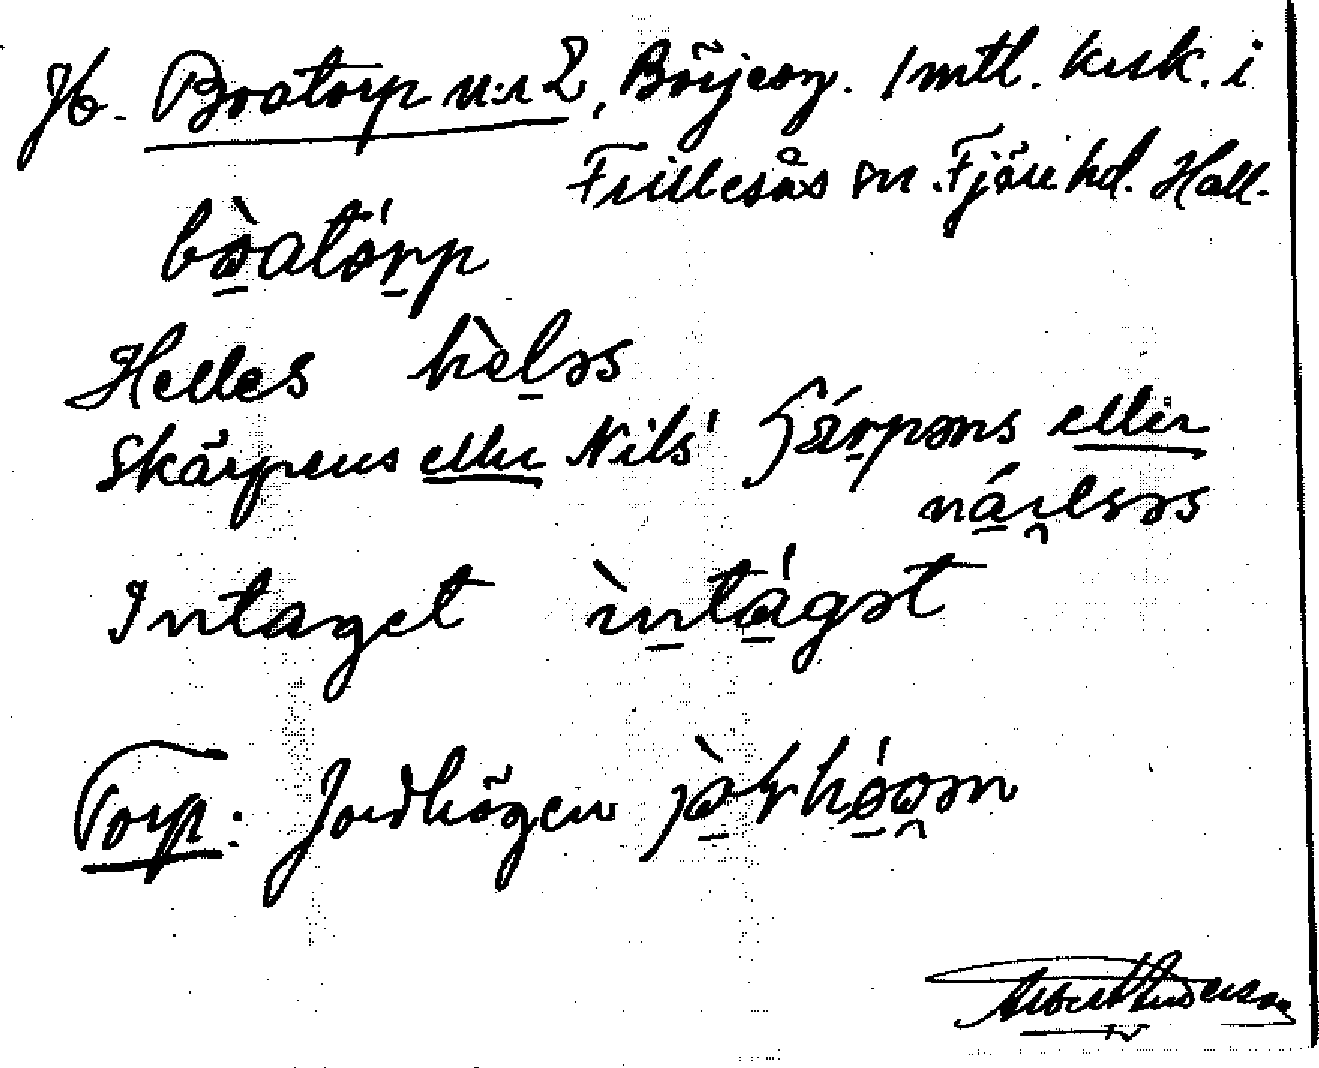 Jb. Boatorp n:r 2, Börjeson. 1 mtl. krsk. i
Frillesås sn. Fjäre hd. Hall.
bòatórp
Helles hèləs
Skärpens eller Nils' ʃærpəns eller
nárləs
Intaget ìntágət
Torp: Jordhögen
Albert Anderson